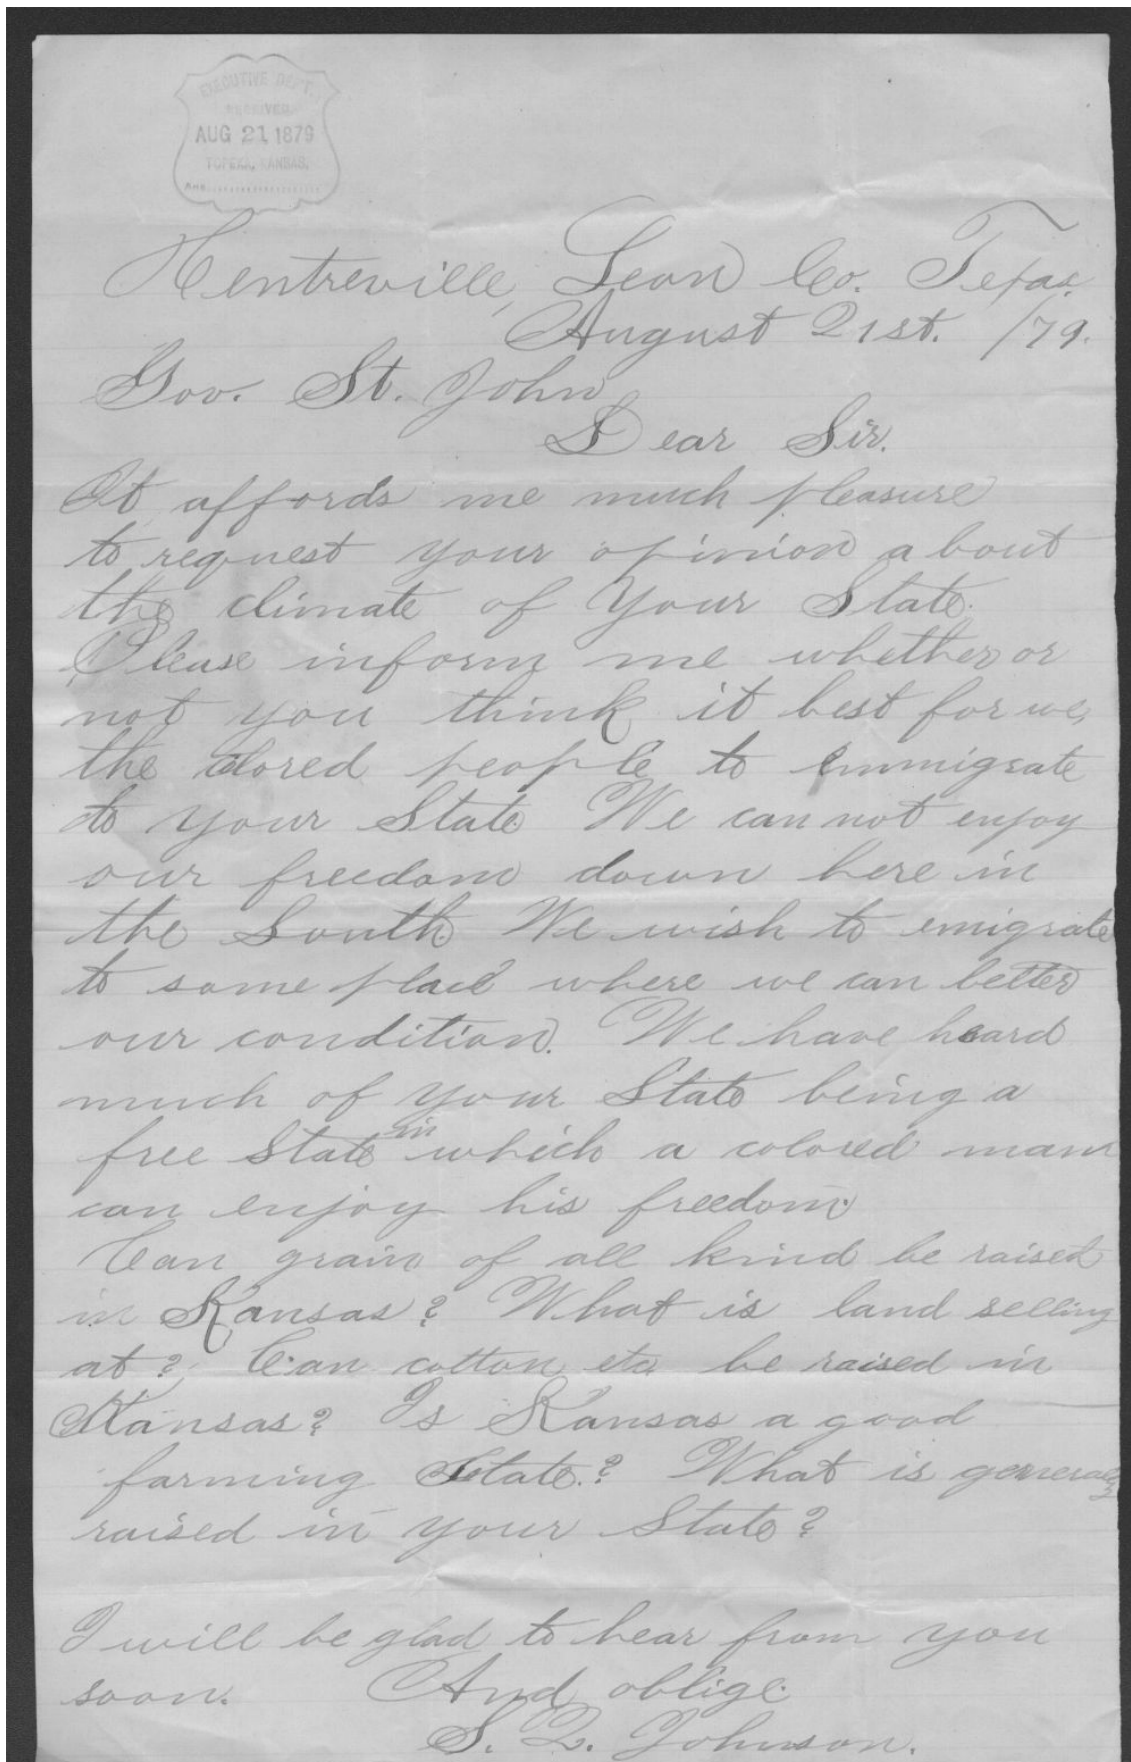 EXECUTIVE DEPT.
RECEIVED
AUG 21 1879
TOPEKA, KANSAS.
Ans.
Centreville, Leon Co. Texas.
August 21st. /79.
Gov. St. John
Dear Sir.
It affords me much pleasure
to request your opinion about
the climate of your State.
Please inform me whether or
not you think it best for we,
the colored people to emmigrate
to your State. We can not enjoy
our freedom down here in
the South. We wish to emigrate
to some place where we can better
our condition. We have heard
much of your State being a
free State in which a colored man
can enjoy his freedom.
Can grain of all kind be raised
in Kansas? What is land selling
at? Can cotton etc be raised in
Kansas? Is Kansas a good
farming State.? What is generally
raised in your State?
I will be glad to hear from you
soon. And oblige.
S. Q. Johnson.